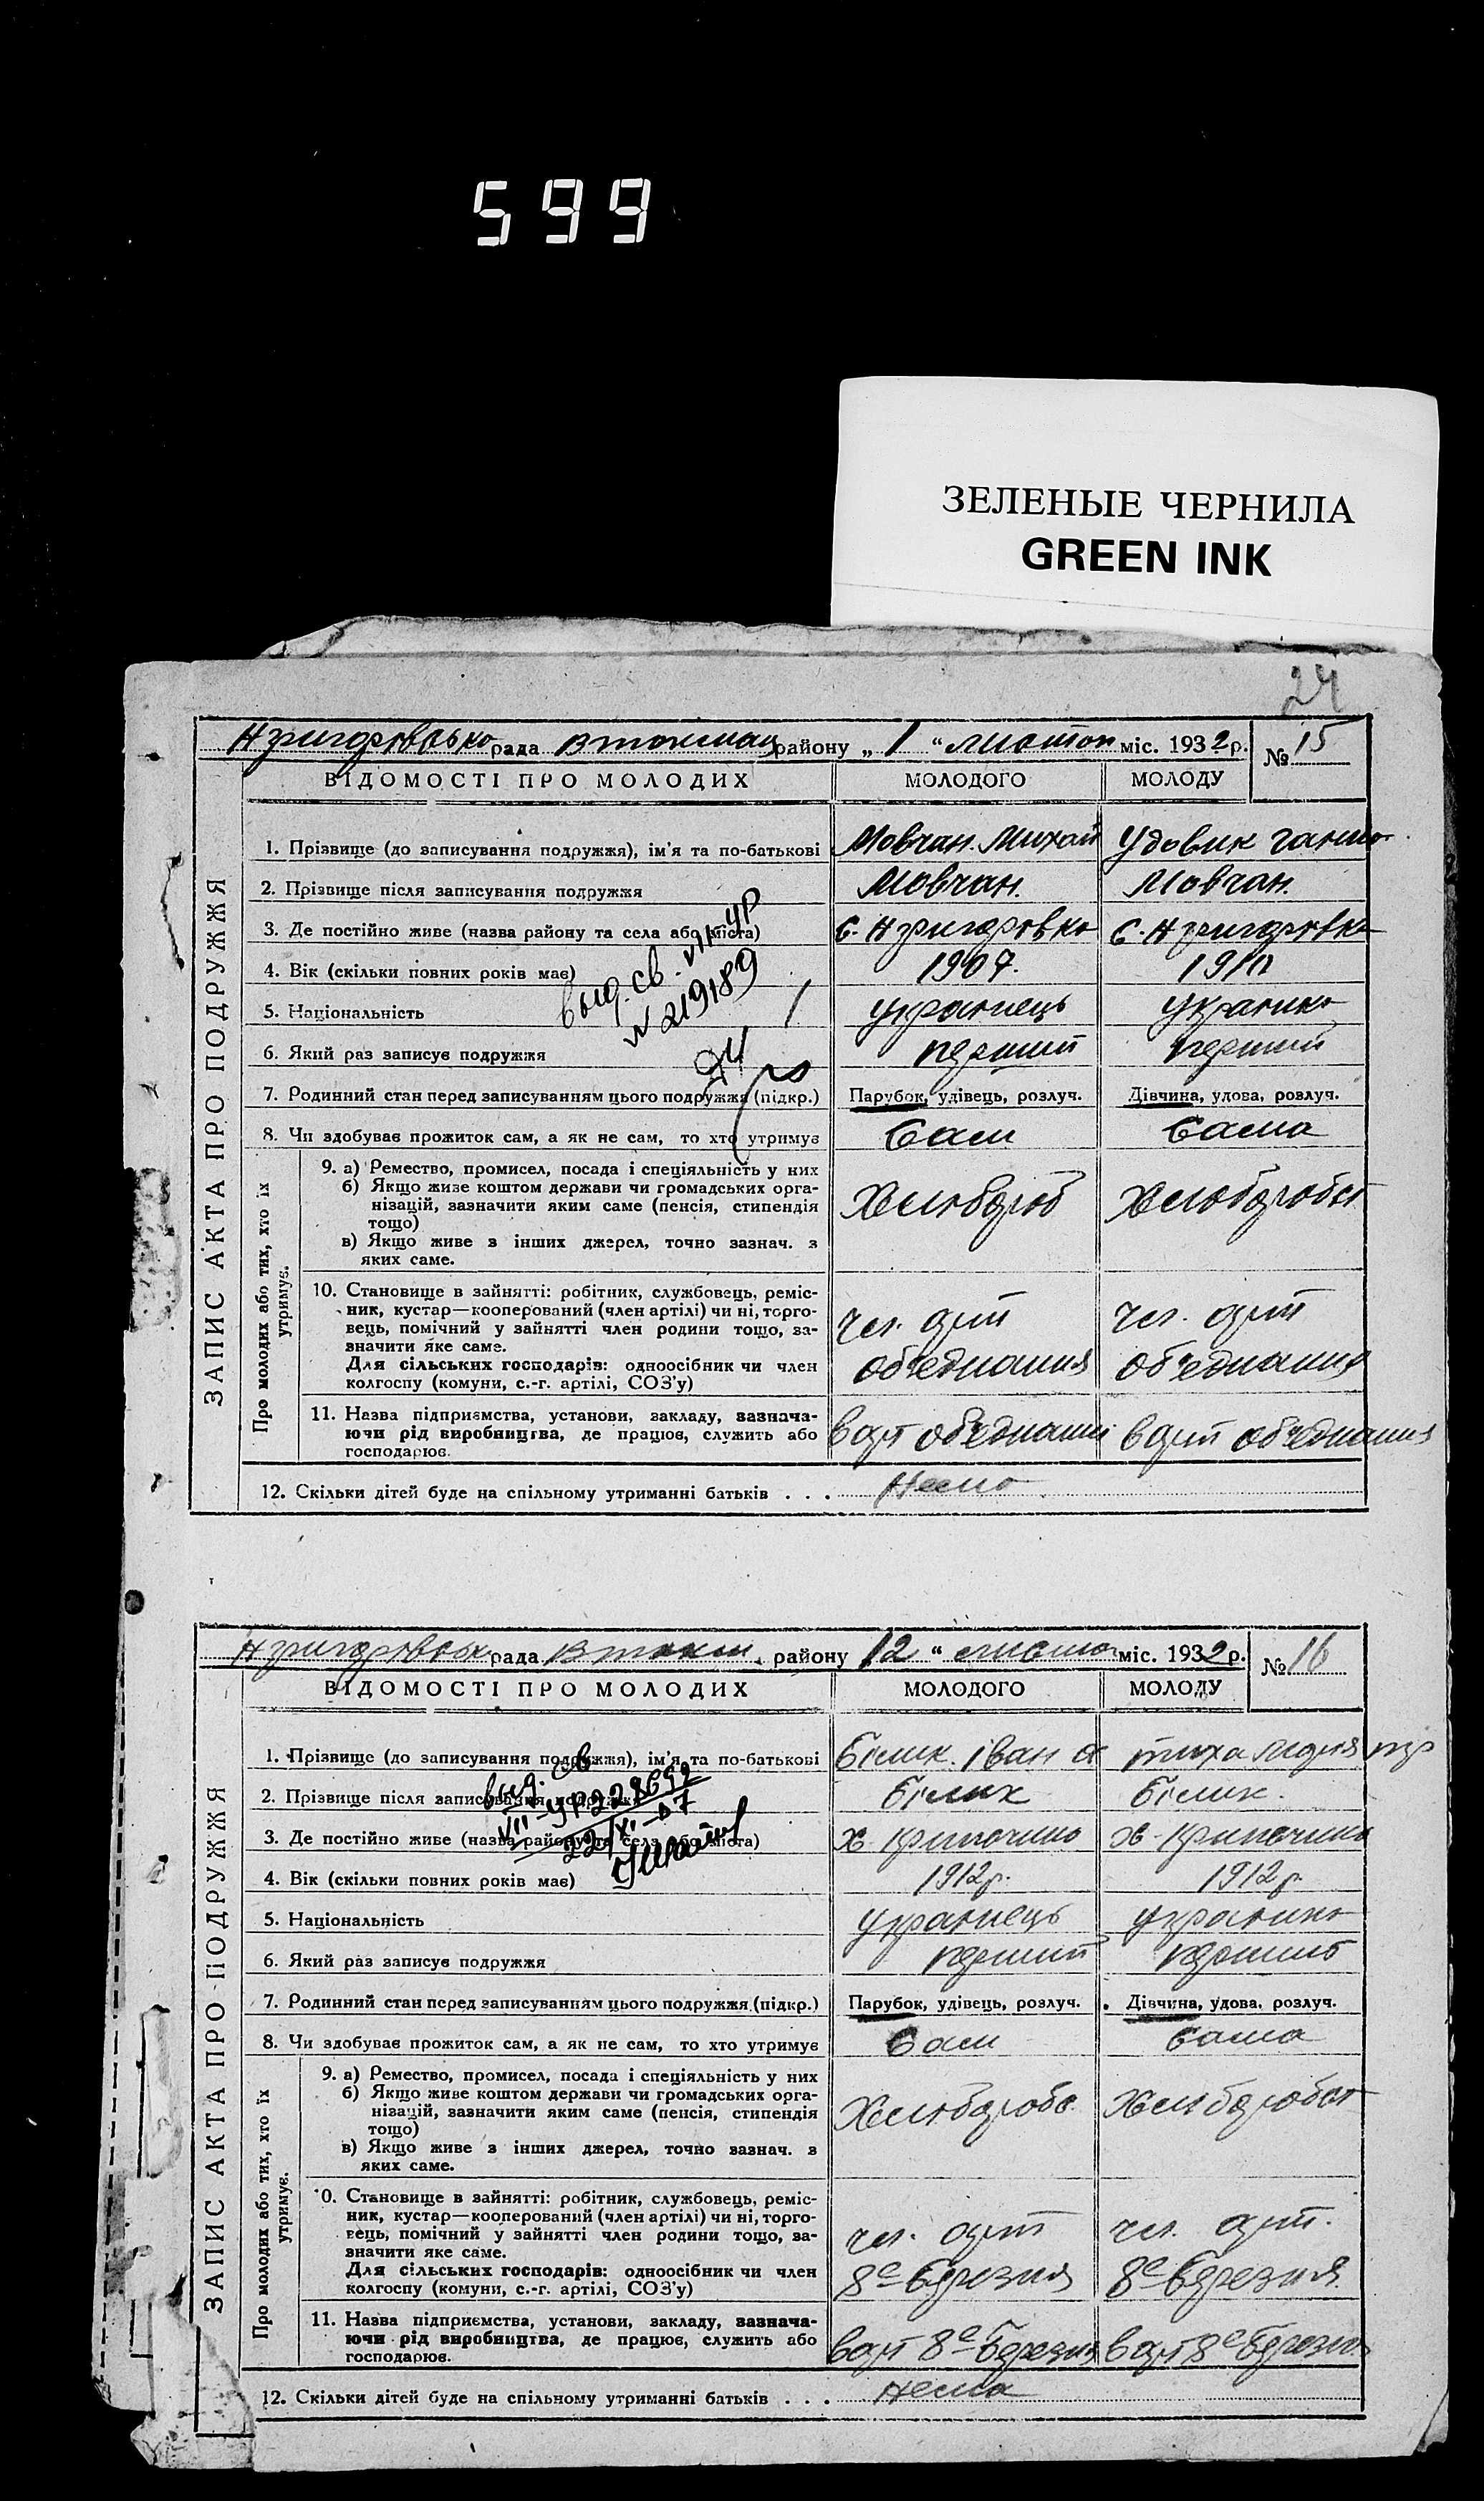 599
ЗЕЛЕНЫЕ ЧЕРНИЛА
GREEN INK
24
рада району „ 1 “ міс. 1932 р. № 15
ВІДОМОСТІ ПРО МОЛОДИХ МОЛОДОГО МОЛОДУ
ЗАПИС АКТА ПРО ПОДРУЖЖЯ
1. Прізвище (до записування подружжя), ім'я та по-батькові Мовчан Михайл Удовик Ганна
2. Прізвище після записування подружжя Мовчан. Мовчан.
3. Де постійно живе (назва району та села або міста) с. Н Григоровка с. Н Григоровка
4. Вік (скільки повних років має) 1907. 1910
выд. св. VII-УР
№ 219189
5. Національність українець українка
6. Який раз записує подружжя перший перший
7. Родинний стан перед записуванням цього подружжя (підкр.) Парубок, удівець, розлуч. Дівчина, удова, розлуч.
8. Чи здобуває прожиток сам, а як не сам, то хто утримує Сам Сама
Про молодих або тих, хто їх утримує.
9. а) Ремество, промисел, посада і спеціяльність у них
б) Якщо живе коштом держави чи громадських орга-
нізацій, зазначити яким саме (пенсія, стипендія
тощо)
в) Якщо живе з інших джерел, точно зазнач. з
яких саме.
Хлібороб
10. Становище в зайнятті: робітник, службовець, реміс-
ник, кустар—кооперований (член артілі) чи ні, торго-
вець, помічний у зайнятті член родини тощо, за-
значити яке саме.
Для сільських господарів: одноосібник чи член
колгоспу (комуни, с.-г. артілі, СОЗ'у)
чл. арт чл. арт
об'еднання об'еднання
11. Назва підприємства, установи, закладу, зазнача-
ючи рід виробництва, де працює, служить або
господарює.
в арт об'еднання в арт об'еднання
12. Скільки дітей буде на спільному утриманні батьків . . . Нема
рада району 12 “ міс. 1932 р. № 16
ВІДОМОСТІ ПРО МОЛОДИХ МОЛОДОГО МОЛОДУ
ЗАПИС АКТА ПРО ПОДРУЖЖЯ
1. Прізвище (до записування подружжя), ім'я та по-батькові Білик. Іван Тиха Лідія
2. Прізвище після записування подружжя Білик Білик.
выд. св
VII-УР 228692
22/XI-
3. Де постійно живе (назва району та села або міста)
4. Вік (скільки повних років має) 1912 р. 1912 р.
5. Національність українець українка
6. Який раз записує подружжя перший перший
7. Родинний стан перед записуванням цього подружжя (підкр.) Парубок, удівець, розлуч. Дівчина, удова, розлуч.
8. Чи здобуває прожиток сам, а як не сам, то хто утримує Сам Сама
Про молодих або тих, хто їх утримує.
9. а) Ремество, промисел, посада і спеціяльність у них
б) Якщо живе коштом держави чи громадських орга-
нізацій, зазначити яким саме (пенсія, стипендія
тощо)
в) Якщо живе з інших джерел, точно зазнач. з
яких саме.
10. Становище в зайнятті: робітник, службовець, реміс-
ник, кустар—кооперований (член артілі) чи ні, торго-
вець, помічний у зайнятті член родини тощо, за-
значити яке саме.
Для сільських господарів: одноосібник чи член
колгоспу (комуни, с.-г. артілі, СОЗ'у)
чл. арт чл. арт.
8е березня 8е березня.
11. Назва підприємства, установи, закладу, зазнача-
ючи рід виробництва, де працює, служить або
господарює.
в арт 8е березня в арт 8е березня
12. Скільки дітей буде на спільному утриманні батьків . . . Нема